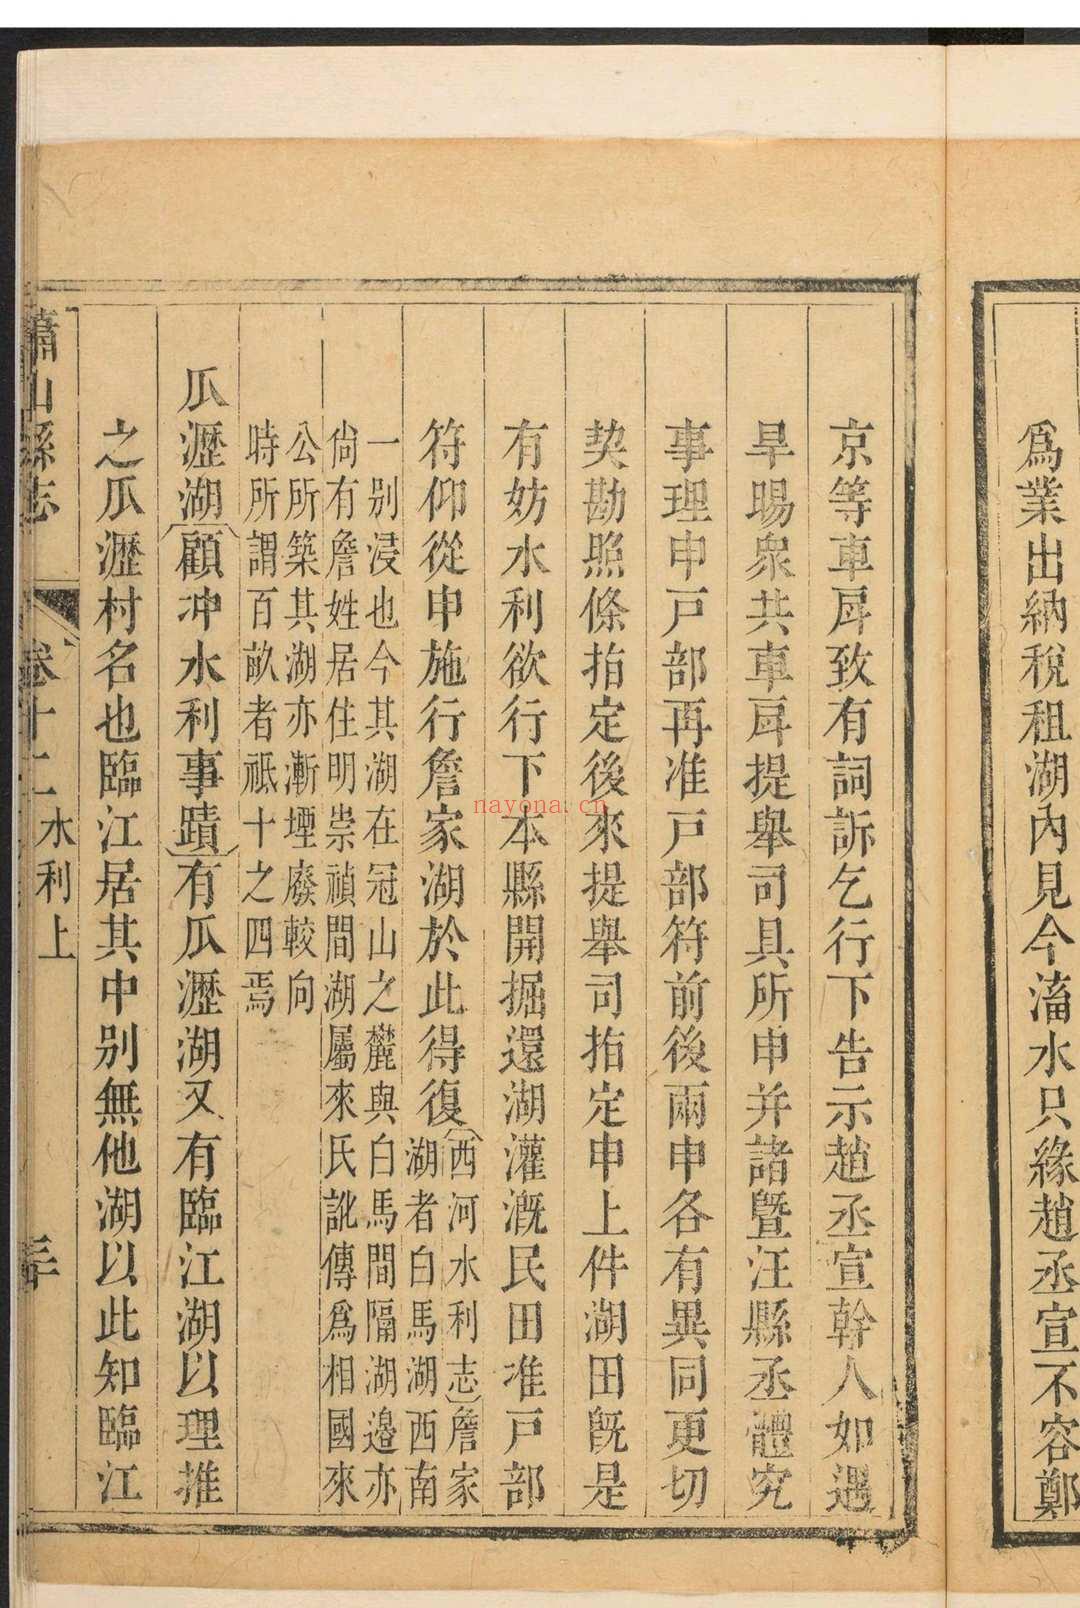 爲業出納稅租湖內見今滀水只緣趙丞宣不容鄭
京等車戽致有詞訴乞行下告示趙丞宣幹人如遇
旱暘衆共車戽提舉司具所申并諸曁汪縣丞體究
事理申戸部再准戸部符前後兩申各有異同更切
契勘照條指定後來提舉司指定申上件湖田旣是
有妨水利欲行下本縣開掘還湖灌漑民田准戸部
符仰從申施行詹家湖於此得復
西河水利志詹家
湖者白馬湖西南
一别浸也今其湖在冠山之麓與白馬間隔湖邉亦
尙有詹姓居住明崇禎間湖屬來氏訛傳爲相國來
公所築其湖亦漸堙廢較向
時所謂百畝者祗十之四焉
瓜瀝湖顧冲水利事蹟有瓜瀝湖又有臨江湖以理推
之瓜瀝村名也臨江居其中别無他湖以此知臨江
蕭山縣志
卷十二
水利上
nayona.cn